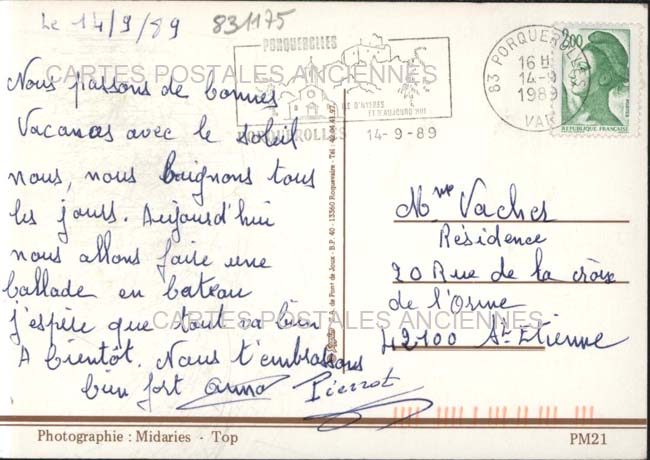 Le 14/9/89
831175
PORQUEROLLES
ILE D'HYERES
PORQUEROLLES
14-9-89
83 PORQUEROLLES
16 H
14-9
1989
VAR
2,00
REPUBLIQUE FRANÇAISE
CARTES POSTALES ANCIENNES
Nous passons de bonnes
Vacances avec le soleil
nous, nous baignons tous
les jours. Aujourd'hui
nous allons faire une
ballade en bateau
j'espère que tout va bien
A bientôt. Nous t'embrassons
bien fort Anna Pierrot
13360 Roquevaire - Tél.
Mme Vacher
Résidence
20 Rue de la croix
de l'Orme
42100 St Etienne
CARTES POSTALES ANCIENNES
Photographie : Midaries - Top
PM21